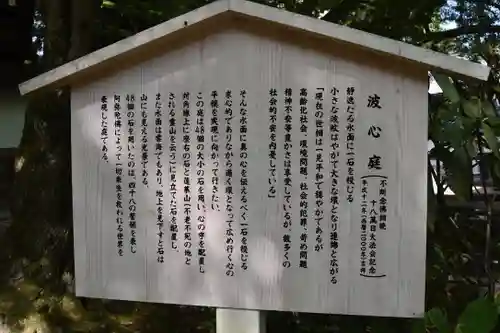 波心庭
不断念佛相続
十八萬日大法会記念
平成十二年(西暦2000年)吉祥
静逸たる水面に一石を投じる
小さな波紋はやがて大きな環となり遠諦と広がる
「現在の世相は一見平和で穏やかであるが
高齢化社会、環境問題、社会的犯罪、苛め問題
精神不安等豊かさは享受しているが、数多くの
社会的不安を内憂している」
そんな水面に真の心を伝えるべく一石を投じる
求心的でありながら遠く環となって広め行く心の
平穏を実現に向かって行きたい。
この庭は48個の大小の石を用い、心の字を配置し
対角線上に座右の石と蓬莱山(不老不死の地と
される霊山を云う)に見立てた石を配置し、
また水面は雲海でもあり、地上を見下すと石は
山にも見える光景である。
48個の石を用いたのは、四十八の誓願を表し
阿弥陀佛によって一切衆生を救われる世界を
表現した庭である。